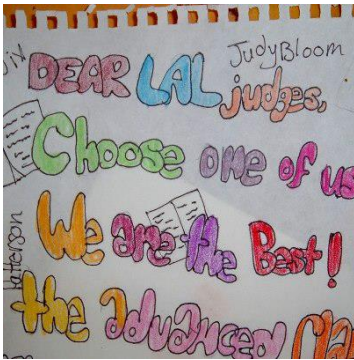 JudyBloom
DEAR LAL
judges,
Choose one of us
We are the Best!
the advanced
Patterson